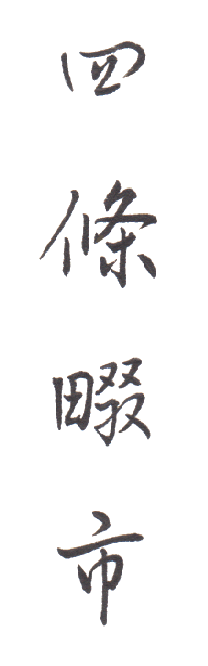 四條畷市